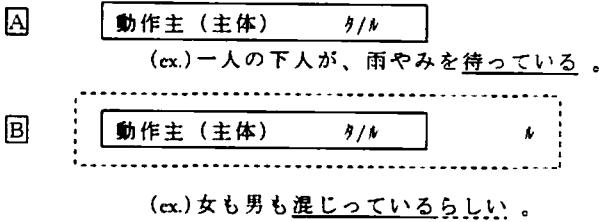 A 動作主（主体） タ/ル
(ex.)一人の下人が、雨やみを待っている。
B 動作主（主体） タ/ル ル
(ex.)女も男も混じっているらしい。